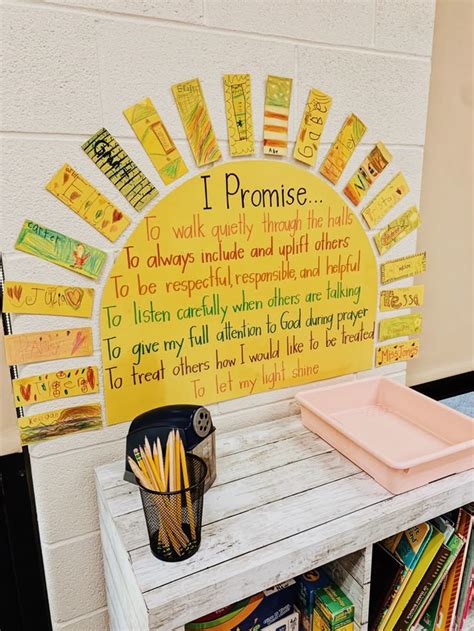 I Promise...
To walk quietly through the halls
To always include and uplift others
To be respectful, responsible, and helpful
To listen carefully when others are talking
To give my full attention to God during prayer
To treat others how I would like to be treated
To let my light shine
carter
Julia
Tessa
Miss Jones